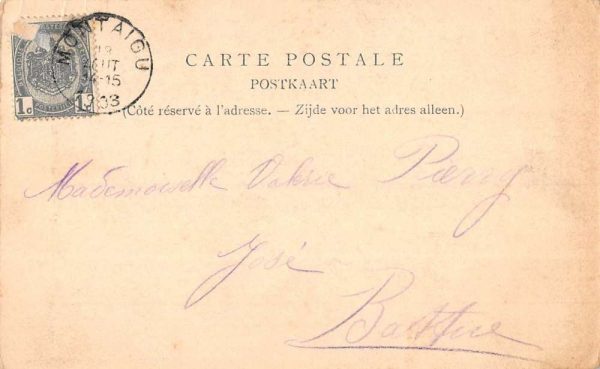 MONTAIGU
18
AOUT
15
1903
1c 1c
CARTE POSTALE
POSTKAART
(Côté réservé à l'adresse. — Zijde voor het adres alleen.)
Mademoiselle Valérie
José